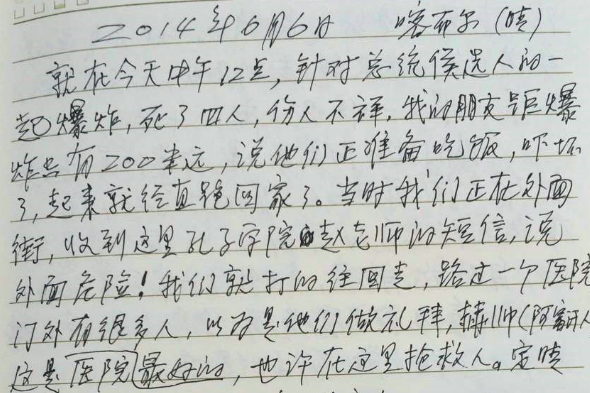 2014年6月6日 喀布尔（晴）
就在今天中午12点，针对总统候选人的一
起爆炸，死了四人，伤人不详，我的朋友距爆
炸只有200米远，说他们正准备吃饭，吓坏
了，起来就径直跑回家了。当时我们正在外面
街，收到这里孔子学院赵老师的短信，说
外面危险！我们就打的往回走，路过一个医院
门外有很多人，以为是他们做礼拜，（阿富汗人
这是医院最好的，也许在这里抢救人。